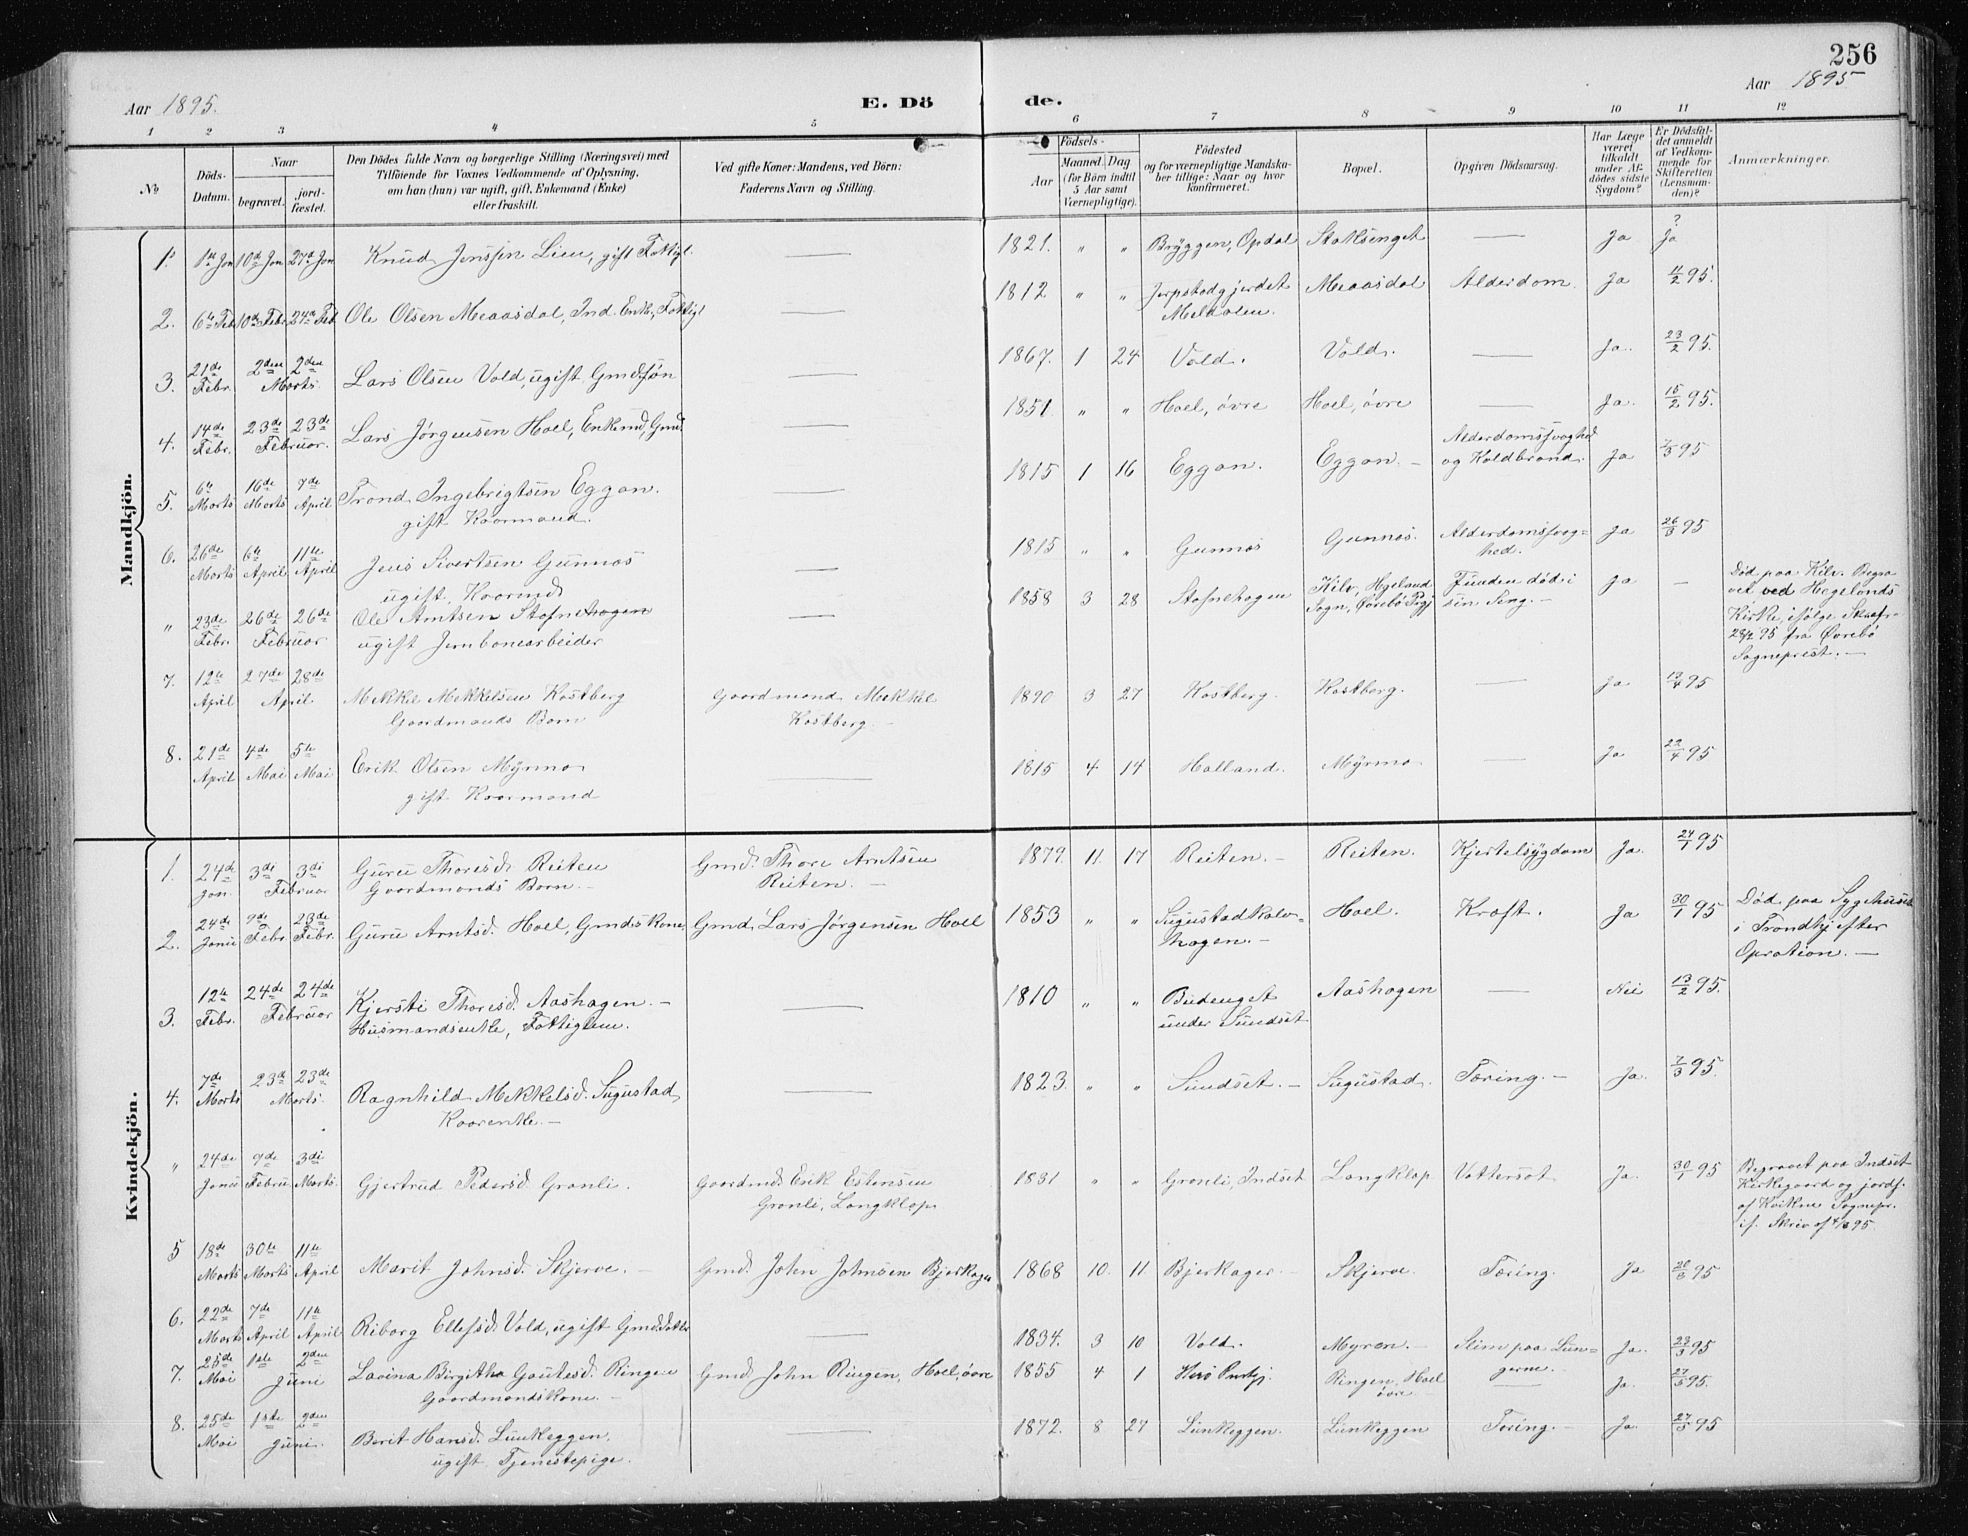 256
Aar 1895.
E. Dö
de.
Aar 1895
1 2 3 4 5 6 7 8 9 10 11 12
№
Döds-Datum.
Naar
begravet.
jord-fæstet.
Den Dödes fulde Navn og borgerlige Stilling (Næringsvei) med
Tilföiende for Voxnes Vedkommende af Oplysning,
om han (hun) var ugift, gift, Enkemand (Enke)
eller fraskilt.
Ved gifte Koner: Mandens, ved Börn:
Faderens Navn og Stilling.
Födsels-
Aar
Maaned. Dag
(for Börn indtil
5 Aar samt
Værnepligtige).
Födested
og for værnepligtige Mandska-
ber tillige: Naar og hvor
konfirmeret.
Bopæl.
Opgiven Dödsaarsag.
Har Læge
været
tilkaldt
under Af-
dödes sidste
Sygdom?
Er Dödsfal-
det anmeldt
af Vedkom-
mende for
Skifteretten
(Lensman-
den)?
Anmærkninger.
Mandkjön.
1. 1ste Jan 10de Jan 27de Jan Knud Jenssen Lien, gift Fattigl. — 1821. " " Bryggen, Opdal Stoksenget — Ja ? Ja
2. 6te Feb. 10de Febr. 24de Feb. Ole Olsen Meaasdal, Ind. Enke, Fattigl — 1812 " " Jerpstadgjerdet Meaasdal Alderdom. Ja 11/2 95.
Melhalen.
3. 21de Febr. 2den 2den Marts. Lars Olsen Vold, ugift Gmdsøn — 1867. 1 24 Vold. Vold. — Ja. 23/2 95.
4. 14de Febr. 23de 23de Februar. Lars Jørgensen Hoel, Enkemd, Gmd. — 1851 " " Hoel, øvre Hoel, øvre — Ja. 15/2 95.
5. 6te Marts 16de Marts 7de April Trond Ingebrigtsen Eggan. — 1815 1 16 Eggan. Eggan. — Alderdomssvaghed
og Koldbrand. Ja 7/3 95
gift Kaarmand.
6. 26de Marts 6te April 11te April Jens Sivertsen Gunnes — 1815 " " Gunnes Gunnes. Alderdomssvag-
hed. Ja 26/3 95
ugift, Kaarmd
" 23de Febr. 26de 26de Februar Ole Arntsen Stofnehagen — 1858 3 28 Stofnehagen Kilv, Hegeland
Sogn, Øvrebø Prgj Funden død i
sin Seng. — Ja —
ugift Jernbanearbeider
Død paa Kilv. Begra
vet ved Hegelands
Kirke, ifølge Skr. af
28/2 95 fra Øvrebø
Sogneprest. —
7. 12te April 27de 28de April Mekkel Mekkelsen Kostberg Gaardmand Mekkel 1890 3 27 Kostberg. Kostberg. — Ja 13/4 95
Gaardmands Barn Kostberg. —
8. 21de April 4de Mai 5te Mai Erik Olsen Myrmo — 1815 4 14 Halland. Myrmo — Ja 22/4 95
gift Kaarmand
Kvindekjön.
1. 24de Jan. 3die 3die Februar Guru Thoresd. Reiten Gmd. Thore Arntsen 1879. 11. 17 Reiten. — Reiten. Kjertelsygdom Ja. 24/1 95
Gaardmands Barn. — Reiten. —
2. 24de Janu 9de Febr. 23de Febr. Guru Arntsd. Hoel, Gmds Kone Gmd. Lars Jørgensen Hoel 1853 " " Sugustadkalv-
hagen. — Hoel. Kræft. Ja 30/1 95
Død paa Sygehuset
i Trondhj. efter
Opration. —
3. 12te Febr. 24de 24de Februar Kjersti Thoresd. Aashagen. — — 1810 " " Budenget
under Sundset Aashagen — Nei 13/2 95.
Husmandsenke, Fattiglem.
4. 7de Marts 23de 23de Marts. Ragnhild Mekkelsd. Sugustad — 1823. " " Sundset. — Sugustad. Tæring. — Ja. 7/3 95.
Kaarenke. —
" 24de Janu 9de Febru 3die Marts. Gjertrud Pedersd. Granli. Gaardmd Erik Estensen 1831 " " Granli, Indset Langklop Vattersot Ja. 30/1 95
Granli, Langklop.
Begravet paa Indset
Kirkegaard og jordf.
af Kvikne Sognepr.
if. Skriv af 4/3 95.
5 18de Marts 30te Marts 11te April Marit Johnsd. Skjerve. — Gmd. John Johnsen Bjerkager 1868 10. 11 Bjerkager. — Skjerve. Tæring. Ja 20/3 95
6. 22de Marts 7de April 11te April Riborg Ellefsd. Vold, ugift Gmd.datter — 1834. 3 10 Vold. Myran. — Slim paa Lun-
gerne. — Ja. 23/3 95
7. 25de Mai 1ste 2den Juni Lavina Birgitha Gautesd. Ringen Gmd. John Ringen, Hoel, øvre 1855 4 1 Herø Prstgj. Ringen, Hoel
øvre — — Ja. 27/5 95.
Gaardmandskone. —
8. 25de Mai 1ste 2den Juni. Berit Hansd. Lunkeggen. — 1872. 8 27 Lunkeggen. Lunkeggen Tæring. — Ja. 27/5 95
ugift Tjenestepige.